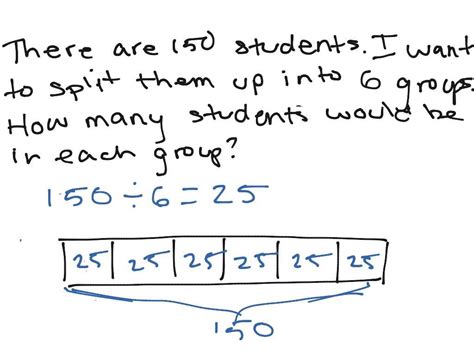 There are 150 students. I want
to split them up into 6 groups.
How many students would be
in each group?
150 ÷ 6 = 25
25 25 25 25 25 25
150